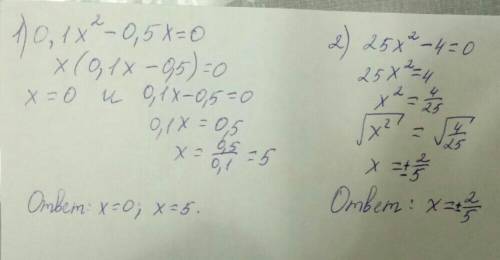 1) 0,1x² - 0,5x = 0
x(0,1x - 0,5) = 0
x = 0 и 0,1x - 0,5 = 0
0,1x = 0,5
x = 0,5/0,1 = 5
Ответ: x = 0; x = 5.
2) 25x² - 4 = 0
25x² = 4
x² = 4/25
√x² = √4/25
x = ± 2/5
Ответ: x = ± 2/5